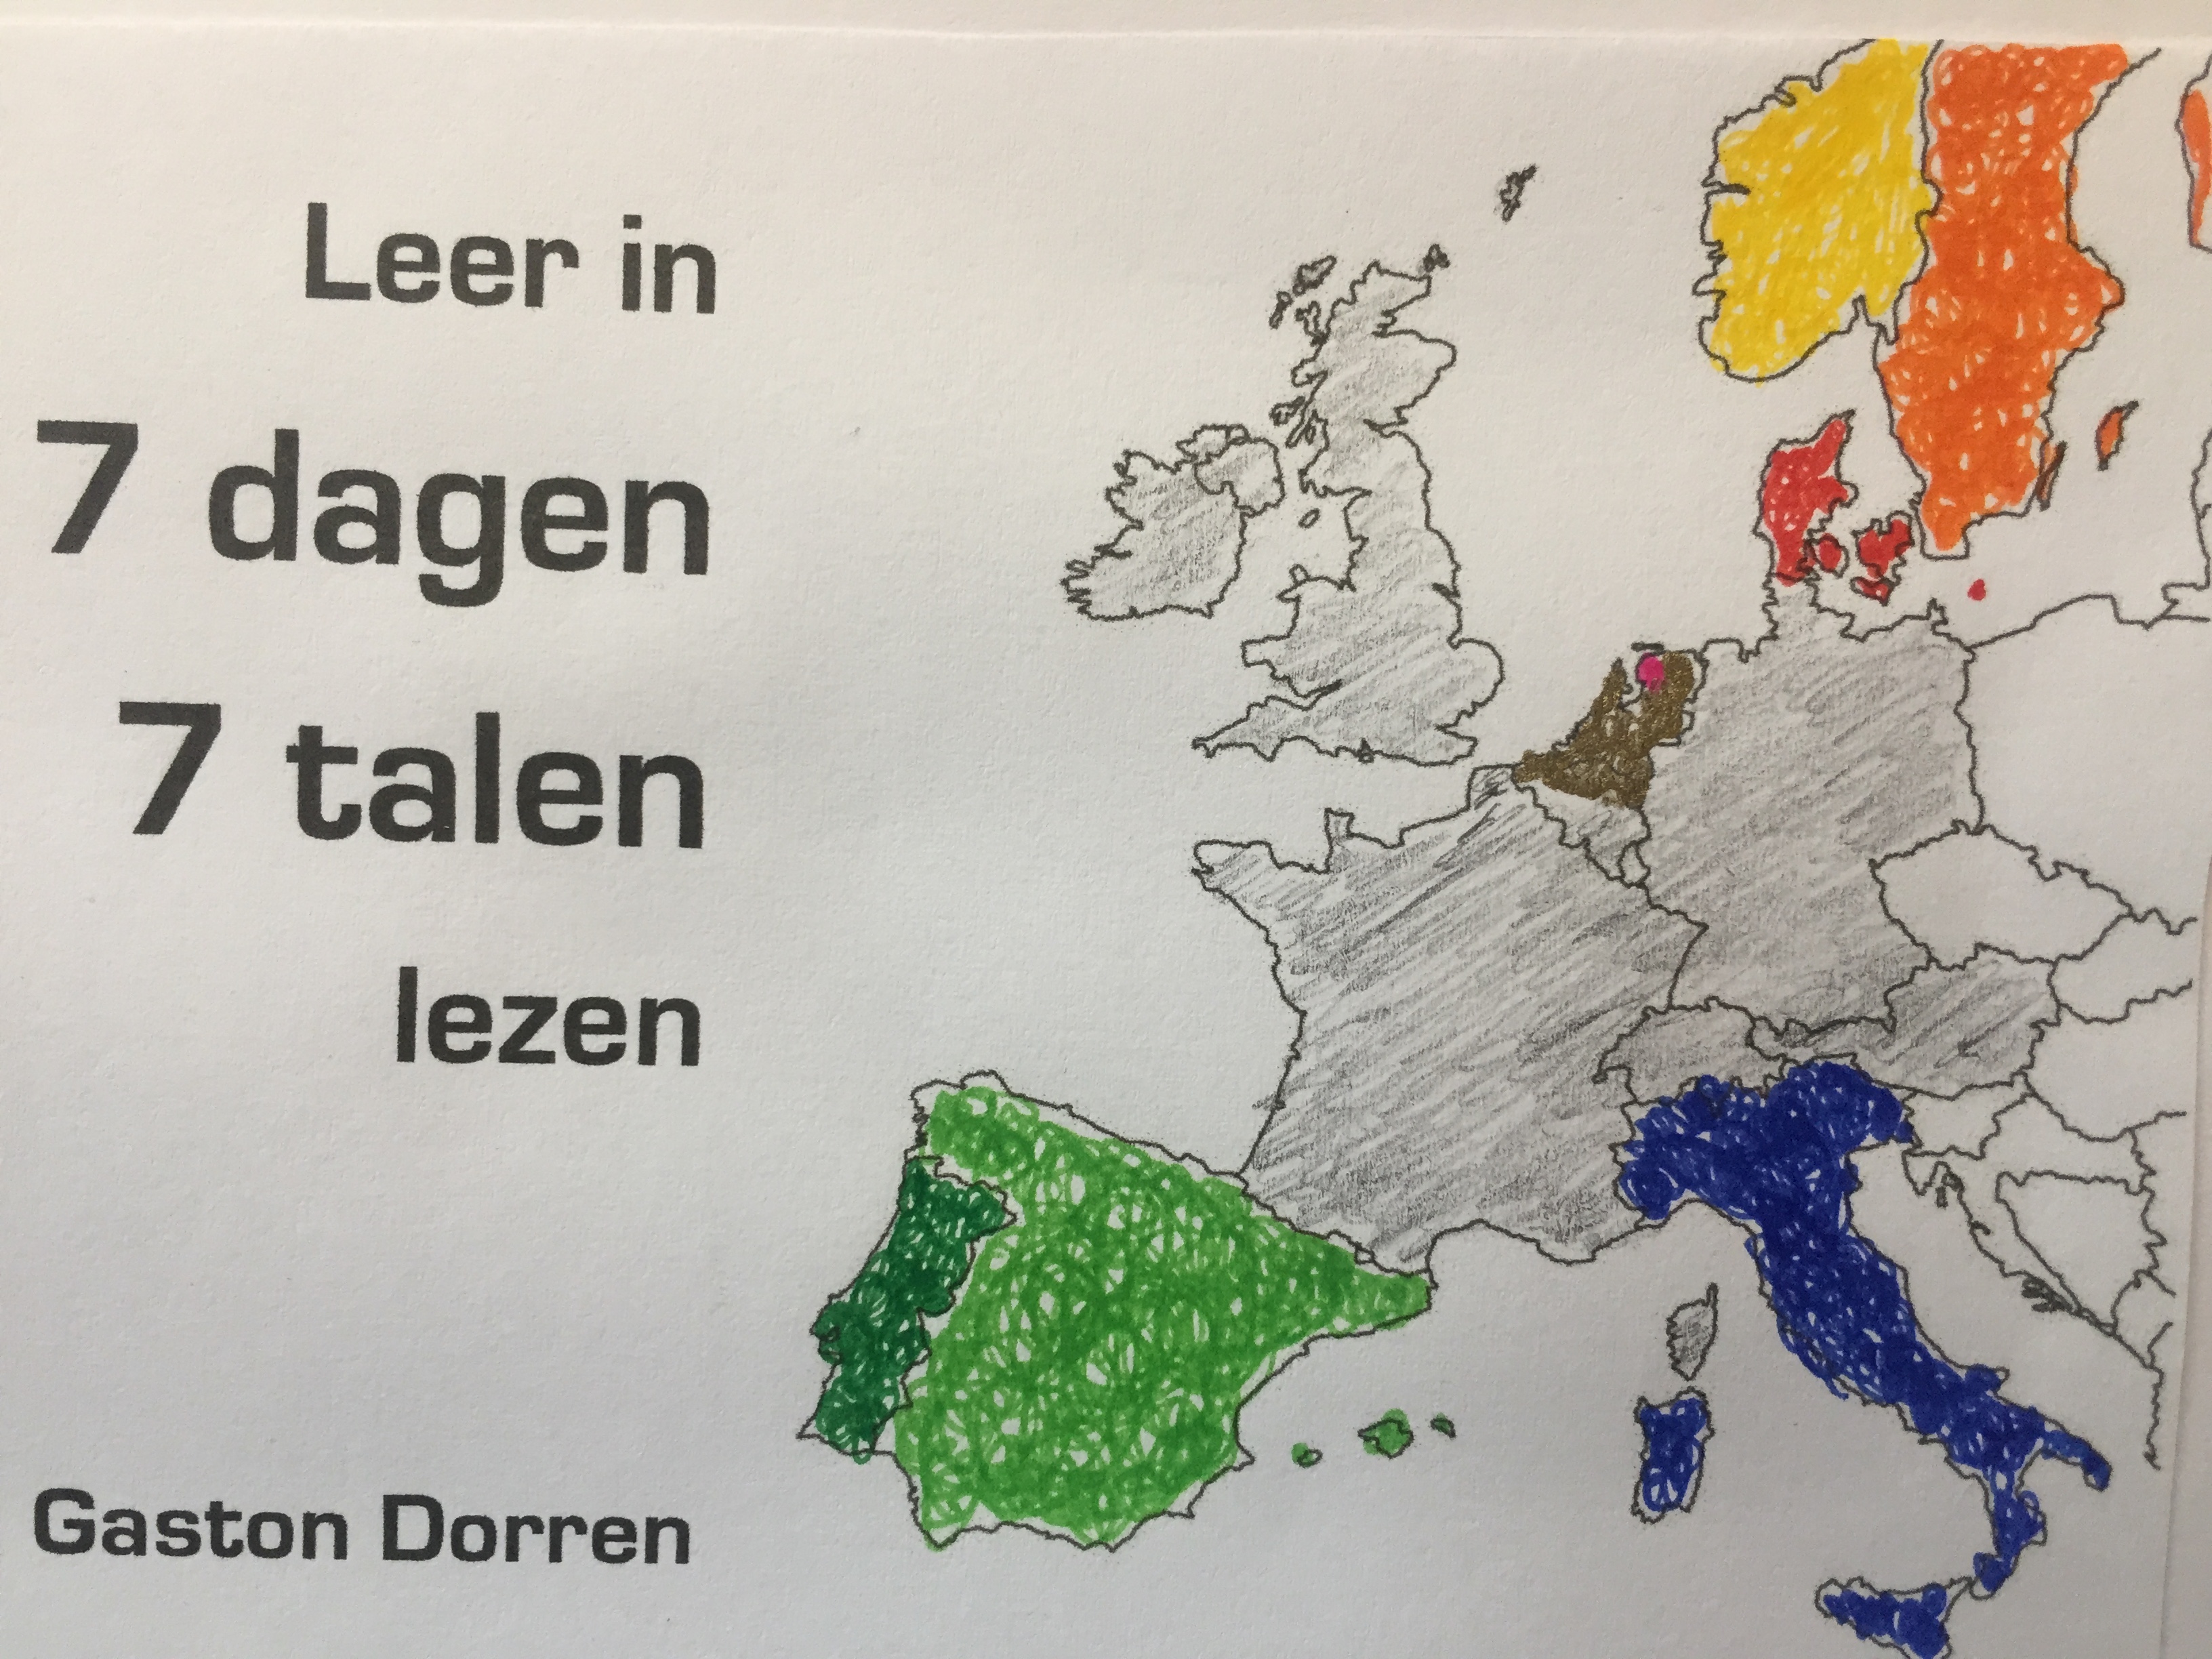 Leer in
7 dagen
7 talen
lezen
Gaston Dorren